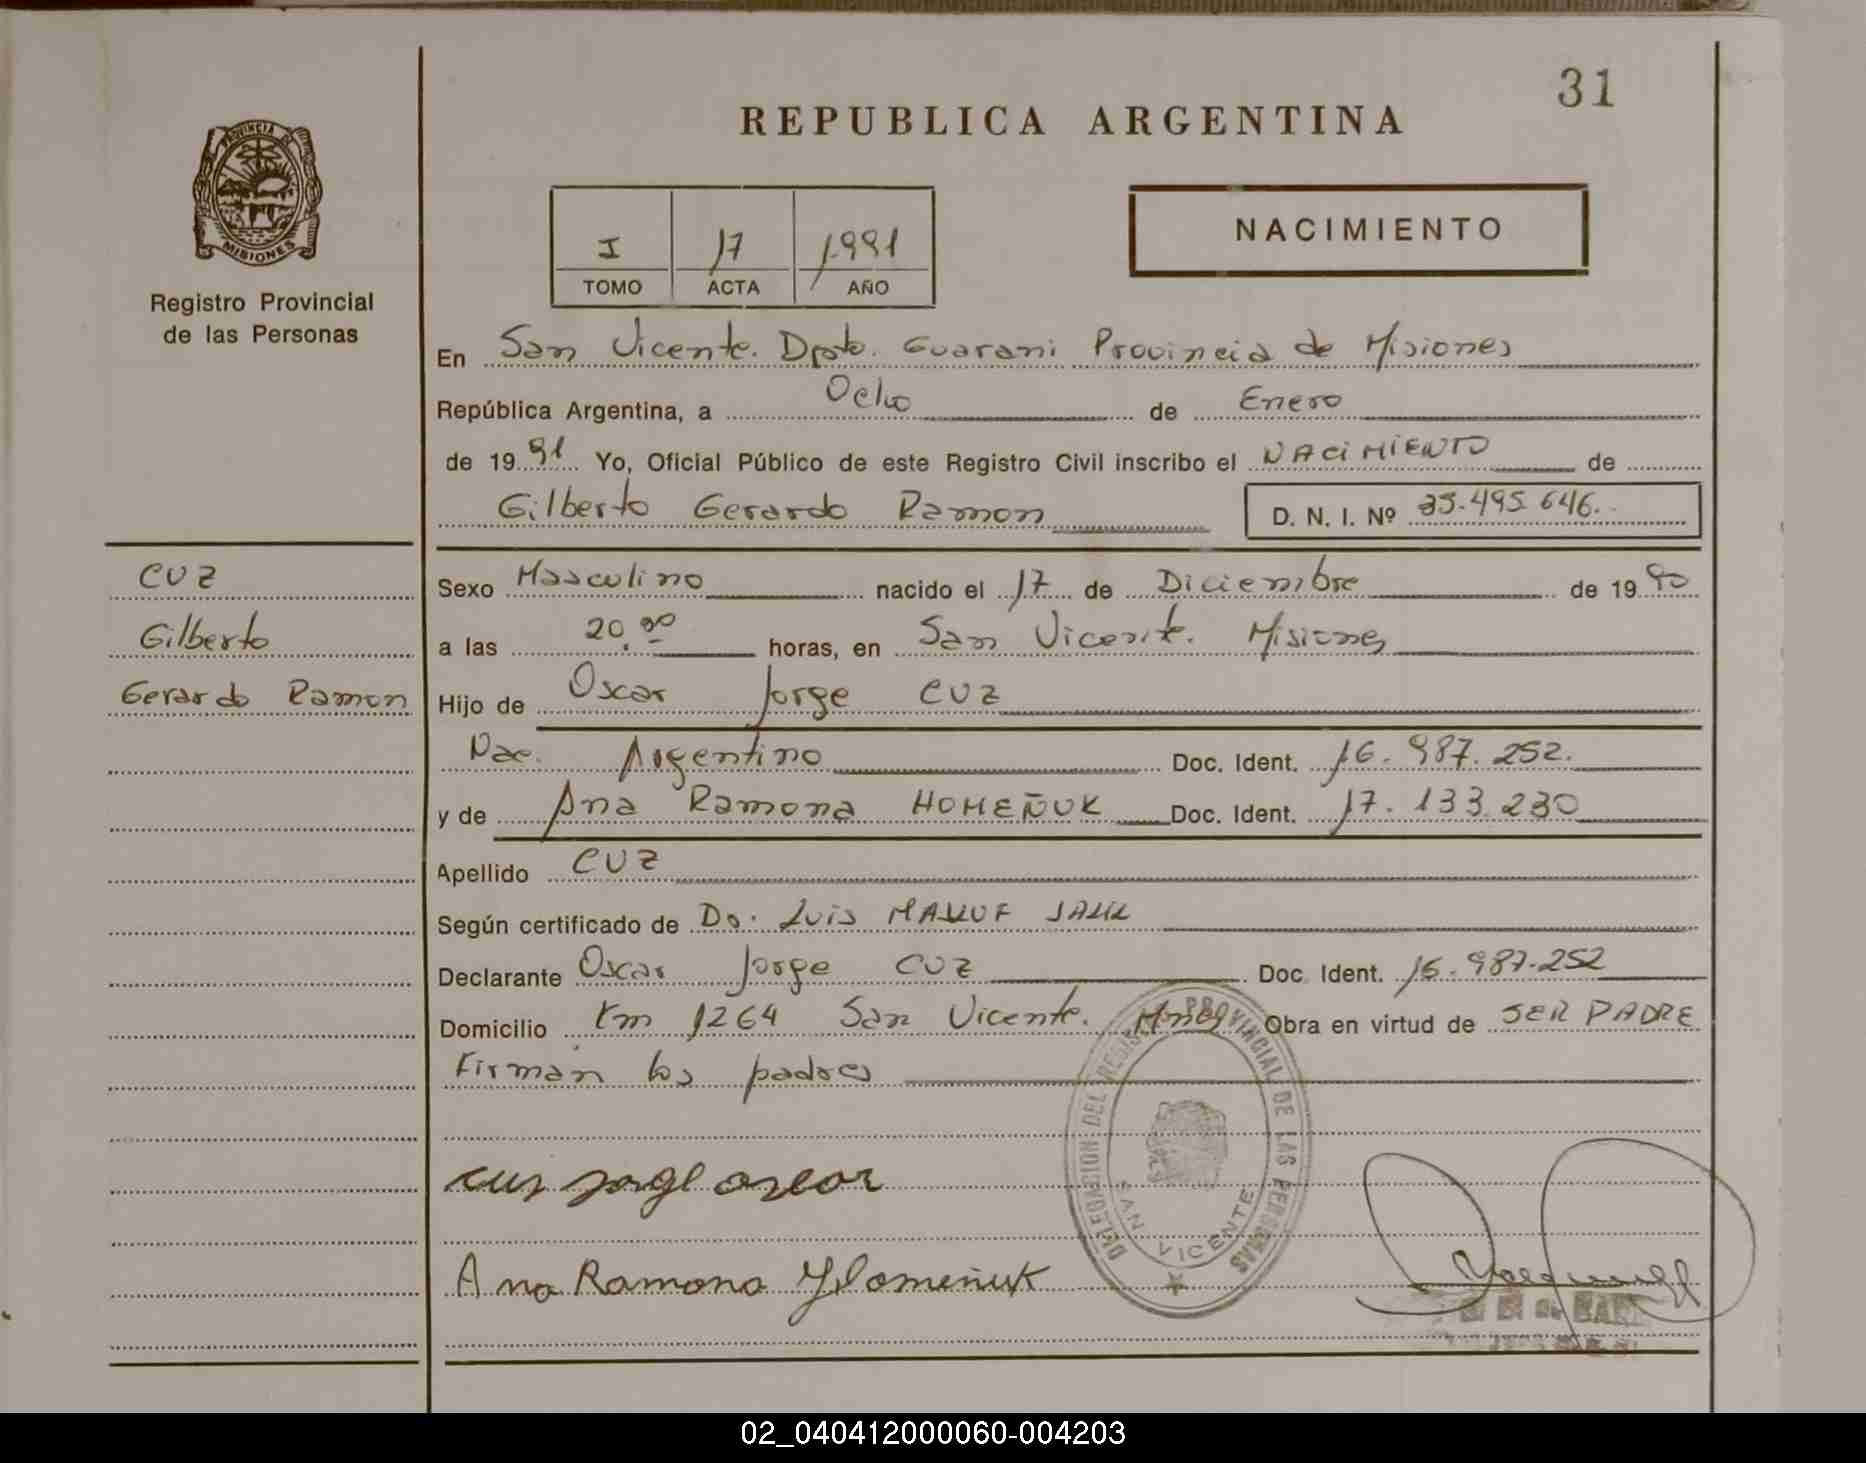 31
REPUBLICA ARGENTINA
PROVINCIA DE
MISIONES
Registro Provincial
de las Personas
I 17 1991
TOMO ACTA AÑO
NACIMIENTO
En San Vicente. Dpto. Guarani Provincia de Misiones
República Argentina, a Ocho de Enero
de 1991 Yo, Oficial Público de este Registro Civil inscribo el NACIMIENTO de
Gilberto Gerardo Ramon D. N. I. Nº 35.495.646.
CUZ
Gilberto
Gerardo Ramon
Sexo Masculino nacido el 17 de Diciembre de 1990
a las 20,00 horas, en San Vicente. Misiones
Hijo de Oscar Jorge CUZ
Nac. Argentino Doc. Ident. 16.987.252.
y de Ana Ramona HOMEÑUK Doc. Ident. 17.133.230
Apellido CUZ
Según certificado de Dr. Luis MALLUF
Declarante Oscar Jorge CUZ Doc. Ident. 16.987.252
Domicilio Km 1264 San Vicente. Mnes Obra en virtud de SER PADRE
Firman los padres
DELEGACION DEL REGISTRO PROVINCIAL DE LAS PERSONAS
SAN VICENTE
cuz jorge oscar
Ana Ramona Homeñuk
02_040412000060-004203